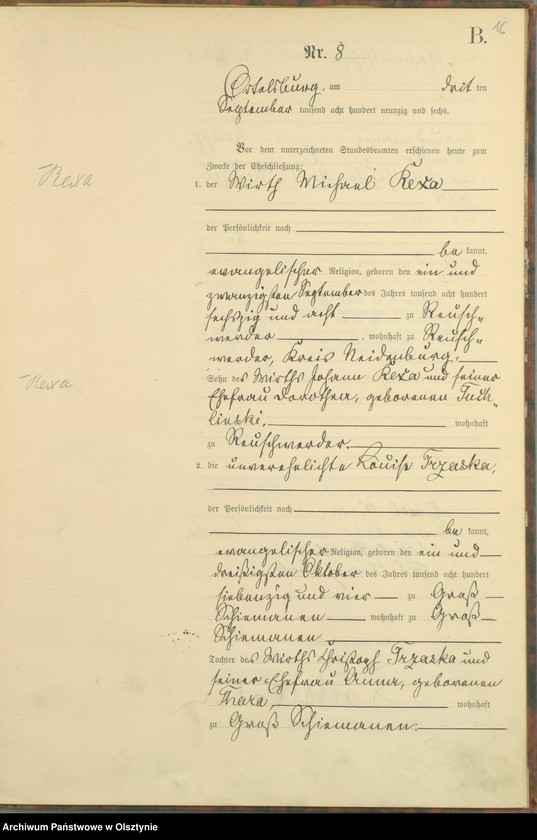 B. 16
Nr. 8
Ortelsburg, am dritten
September tausend acht hundert neunzig und sechs.
Vor dem unterzeichneten Standesbeamten erschienen heute zum
Zwecke der Eheschließung:
1. der Wirth Michael Rexa
Rexa
der Persönlichkeit nach
bekannt,
evangelischer Religion, geboren den ein und
zwanzigsten September des Jahres tausend acht hundert
sechszig und acht zu Reusch-
werder, wohnhaft zu Reusch-
werder, Kreis Neidenburg,
Rexa
Sohn des Wirths Johann Rexa und seiner
Ehefrau Dorothea, geborenen
wohnhaft
zu Reuschwerder.
2. die unverehelichte Louise Trzaska,
der Persönlichkeit nach
bekannt,
evangelischer Religion, geboren den ein und
dreißigsten Oktober des Jahres tausend acht hundert
siebenzig und vier zu Groß
Schiemanen wohnhaft zu Groß
Schiemanen
Tochter des Wirths Christoph Trzaska und
seiner Ehefrau Anna, geborenen
wohnhaft
zu Groß Schiemanen.
Archiwum Państwowe w Olsztynie